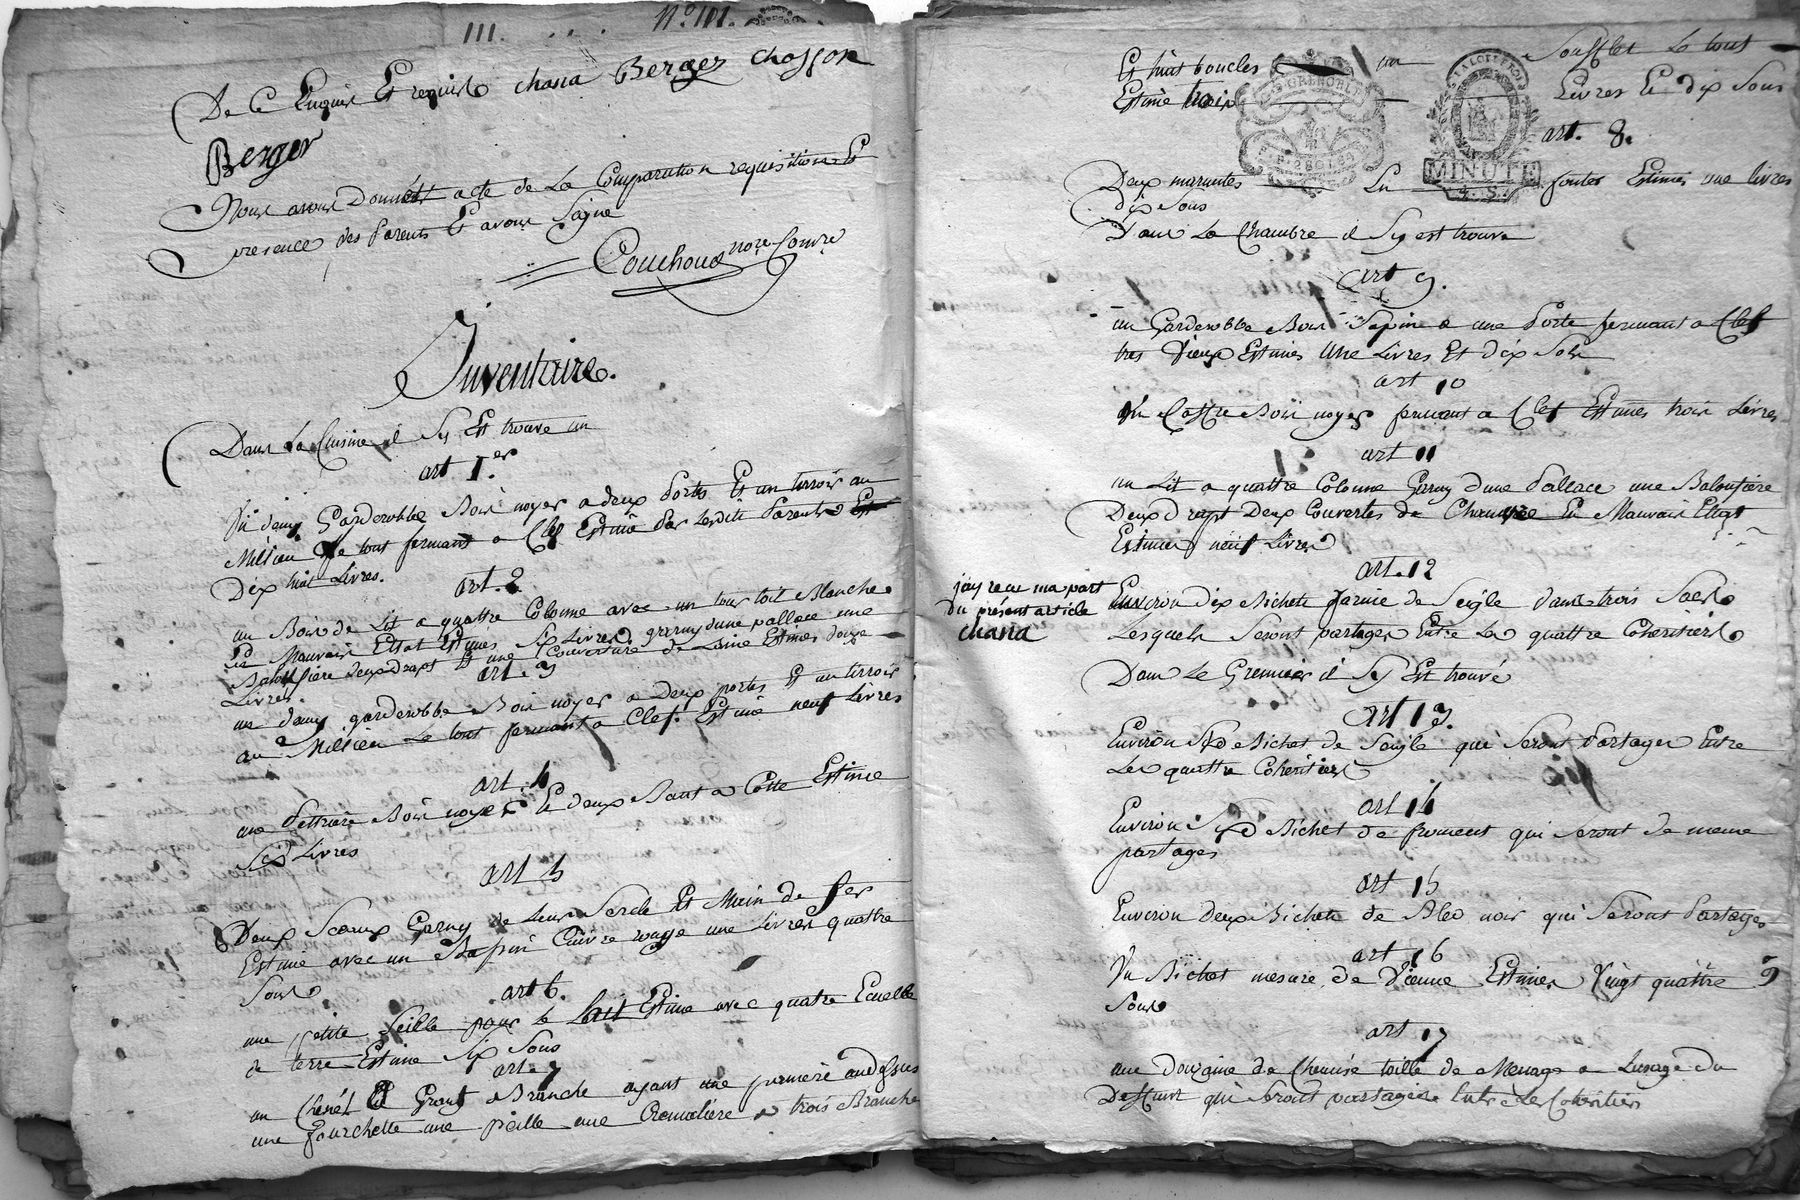 III. N° 111.
De ce Enquis Et requis chana Berger chosson
Berger
Nous avons Donnés acte de La Comparution requisition Et
presence des Parents Et avons Signé
Couchoud nore
Inventaire.
Dans La Cuisine il Sy Est trouvé un
art 1.er
Un demy Garderobbe Bois noyer a deux Portes Et un tirroir au
Millieu Le tout fermant a Clef Estimé Par lesdits Parents
Dix huit Livres.
art. 2
un Bois de Lit a quattre Colonne avec un tour toil Blanche
En Mauvais Ettat Estimés Six Livres garny dune pallace une
Balouffiere deux drapt Et une Couverture de Laine Estimés douze
Livres
art. 3
un demy garderobbe Bois noyer a Deux portes Et un tirroir
au Millieu Le tout fermant a Clef. Estimé neuf Livres
art. 4
une Pettriere Bois noyer Et deux Bant a Cotte Estimé
Six Livres
art 5
Deux Sceaux Garny de Leur Sercle Et Main de fer
Estimé avec un Bassin Cuivre rouge une Livres quattre
Sous
art 6.
une petite Seille pour Le Lait Estimé avec quatre Ecuelle
de terre Estimé Six Sous
art. 7
un Chenêt a Grant Branche ayant une pommere audessus
une fourchette une poille une Cremaliere a trois Branche
Et huit boucles un Soufflet Le tout
Estimé trois Livres Et dix Sous
GRENOBLE
MINUTE
4. S.
art. 8.
Deux marmites En fontes Estimés une livres
dix Sous
Dans La Chambre il Sy est trouvé
art 9.
un Garderobbe Bois Sapin a une Porte fermant a Clef
tres Vieux Estimés Une Livres Et dix Sols
art 10
Un Coffre Bois noyer fermant a Clef Estimés trois Livres
art 11
un Lit a quattre Colonne Garny dune Pallace une Balouffiere
Deux drapt Deux Couvertes de Chanvre En Mauvais Ettat
Estimés neuf Livres
art. 12
jay recu ma part
du présent article
chana
Environ dix Bichets farine de Seigle dans trois Sacs
Lesquels Seront partager Entre Les quattre Coheritiers
Dans Le Grennier il Sy Est trouvé
art 13.
Environ Six Bichet de Seigle qui Seront Partager Entre
Les quattre Coheritiers
art 14
Environ Six Bichet de froment qui Seront de meme
partages
art 15
Environ deux Bichets de Bled noir qui Seront Partages
art 16
Un Bichet mesure de Vienne Estimés Vingt quattre
Sous
art 17
une Douzaine de Chemise toille de Menage a Lusage du
Deffunt qui Seront partagées Entre Les Coheritiers